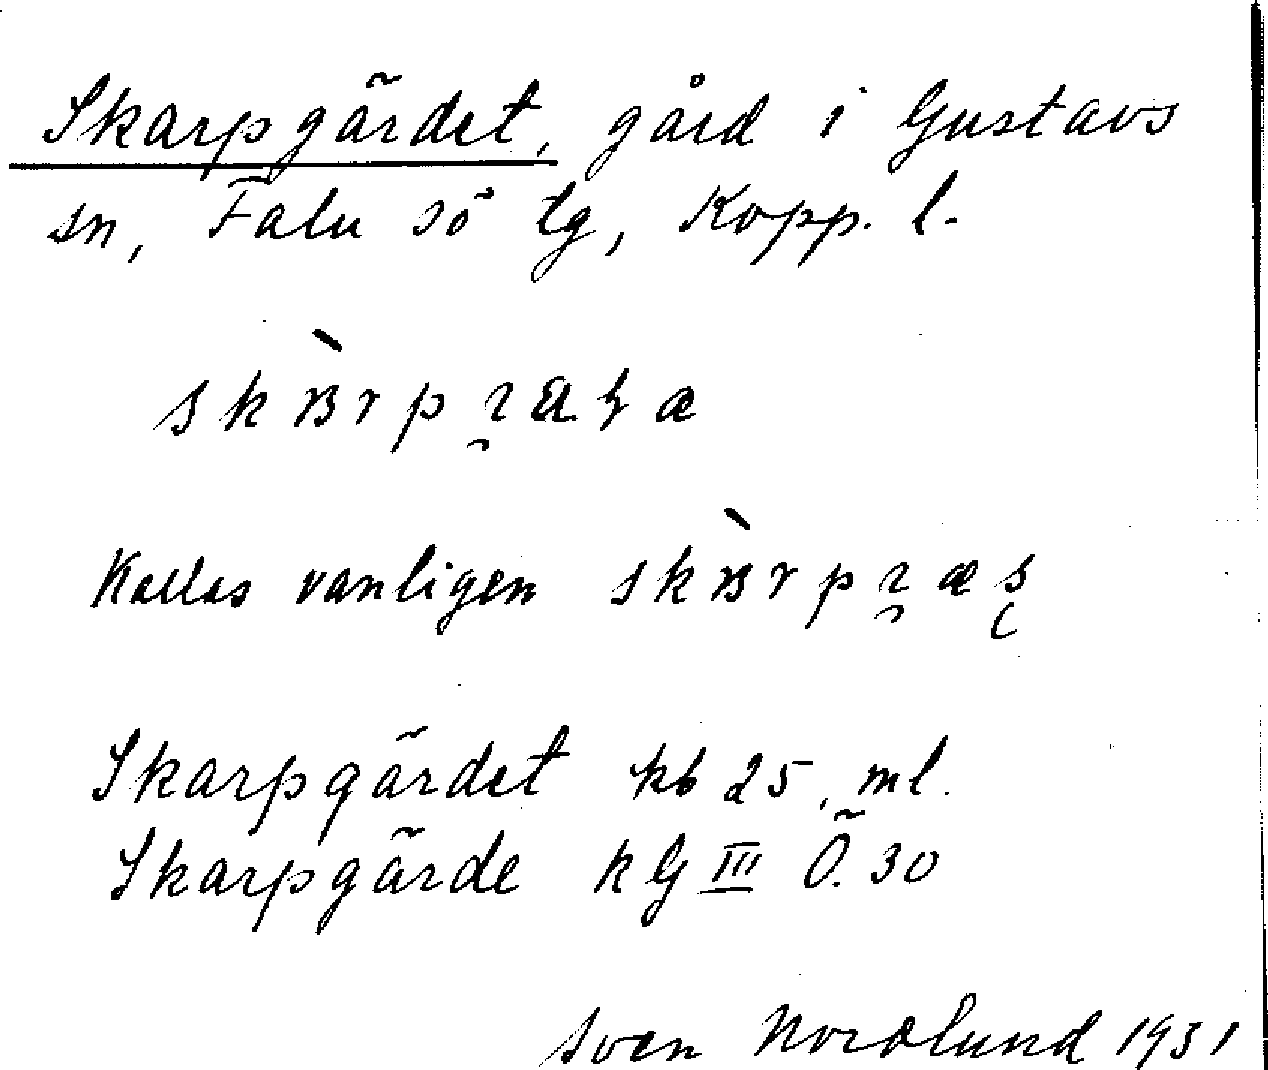 Skarpgärdet, gård i Gustavs
sn, Falu sö tg, Kopp. l.
Kallas vanligen
Skarpgärdet kb 25, ml.
Skarpgärde kG III Ö. 30
Sven Nordlund 1931